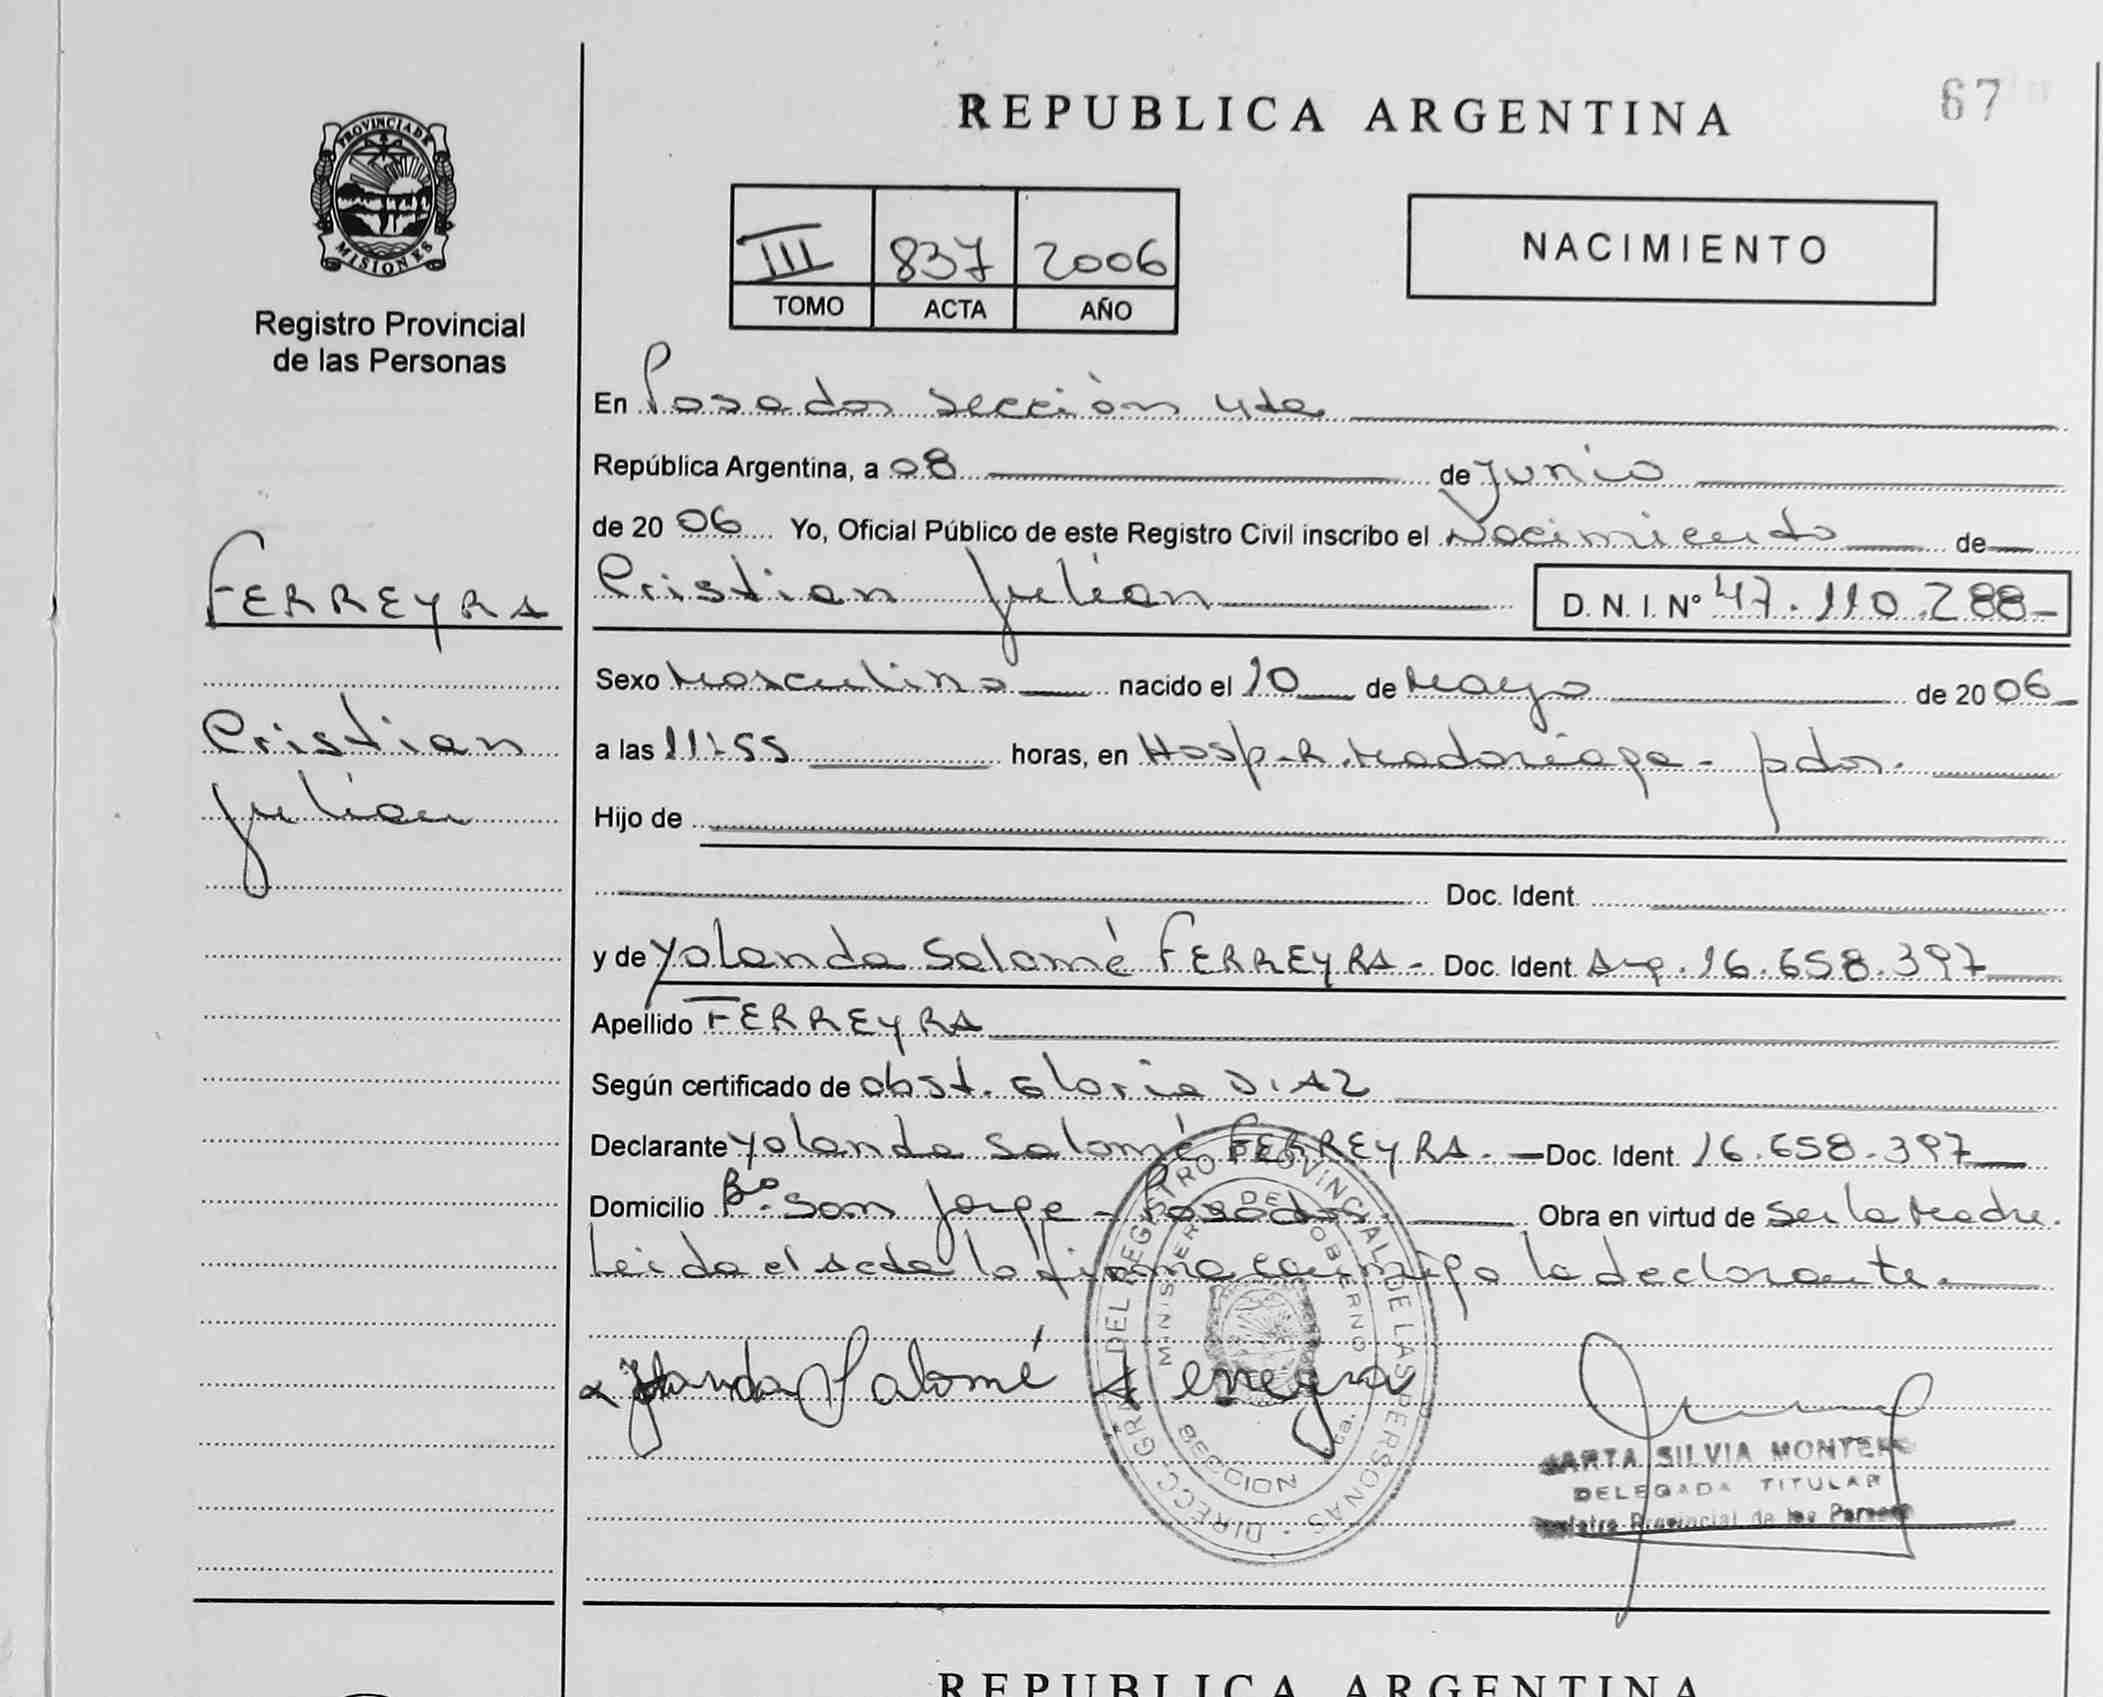 REPUBLICA ARGENTINA
67
PROVINCIA DE
MISIONES
Registro Provincial
de las Personas
III 837 2006
TOMO ACTA AÑO
NACIMIENTO
En Posadas sección 4ta
República Argentina, a 08 de Junio
de 20 06 Yo, Oficial Público de este Registro Civil inscribo el Nacimiento de
FERREYRA
Cristian Julián D. N. I. Nº 47.110.288
Sexo Masculino nacido el 10 de Mayo de 20 06
Cristian
a las 11:55 horas, en Hosp. R. Madariaga - pdas.
Julián
Hijo de
Doc. Ident.
y de Yolanda Salomé FERREYRA - Doc. Ident. Arg. 16.658.397
Apellido FERREYRA
Según certificado de obst. Gloria DIAZ
Declarante Yolanda Salomé FERREYRA. Doc. Ident. 16.658.397
Domicilio Bº. San Jorge - Posadas. Obra en virtud de ser la Madre.
Leida el Acta la firma conmigo la declarante.
DIRECC. GRAL. DEL REGISTRO PROVINCIAL DE LAS PERSONAS
MINISTERIO DE GOBIERNO
SECCION 4ta.
Yolanda Salomé Ferreyra
MARTA SILVIA MONTERO
DELEGADA TITULAR
Registro Provincial de las Personas
REPUBLICA ARGENTINA